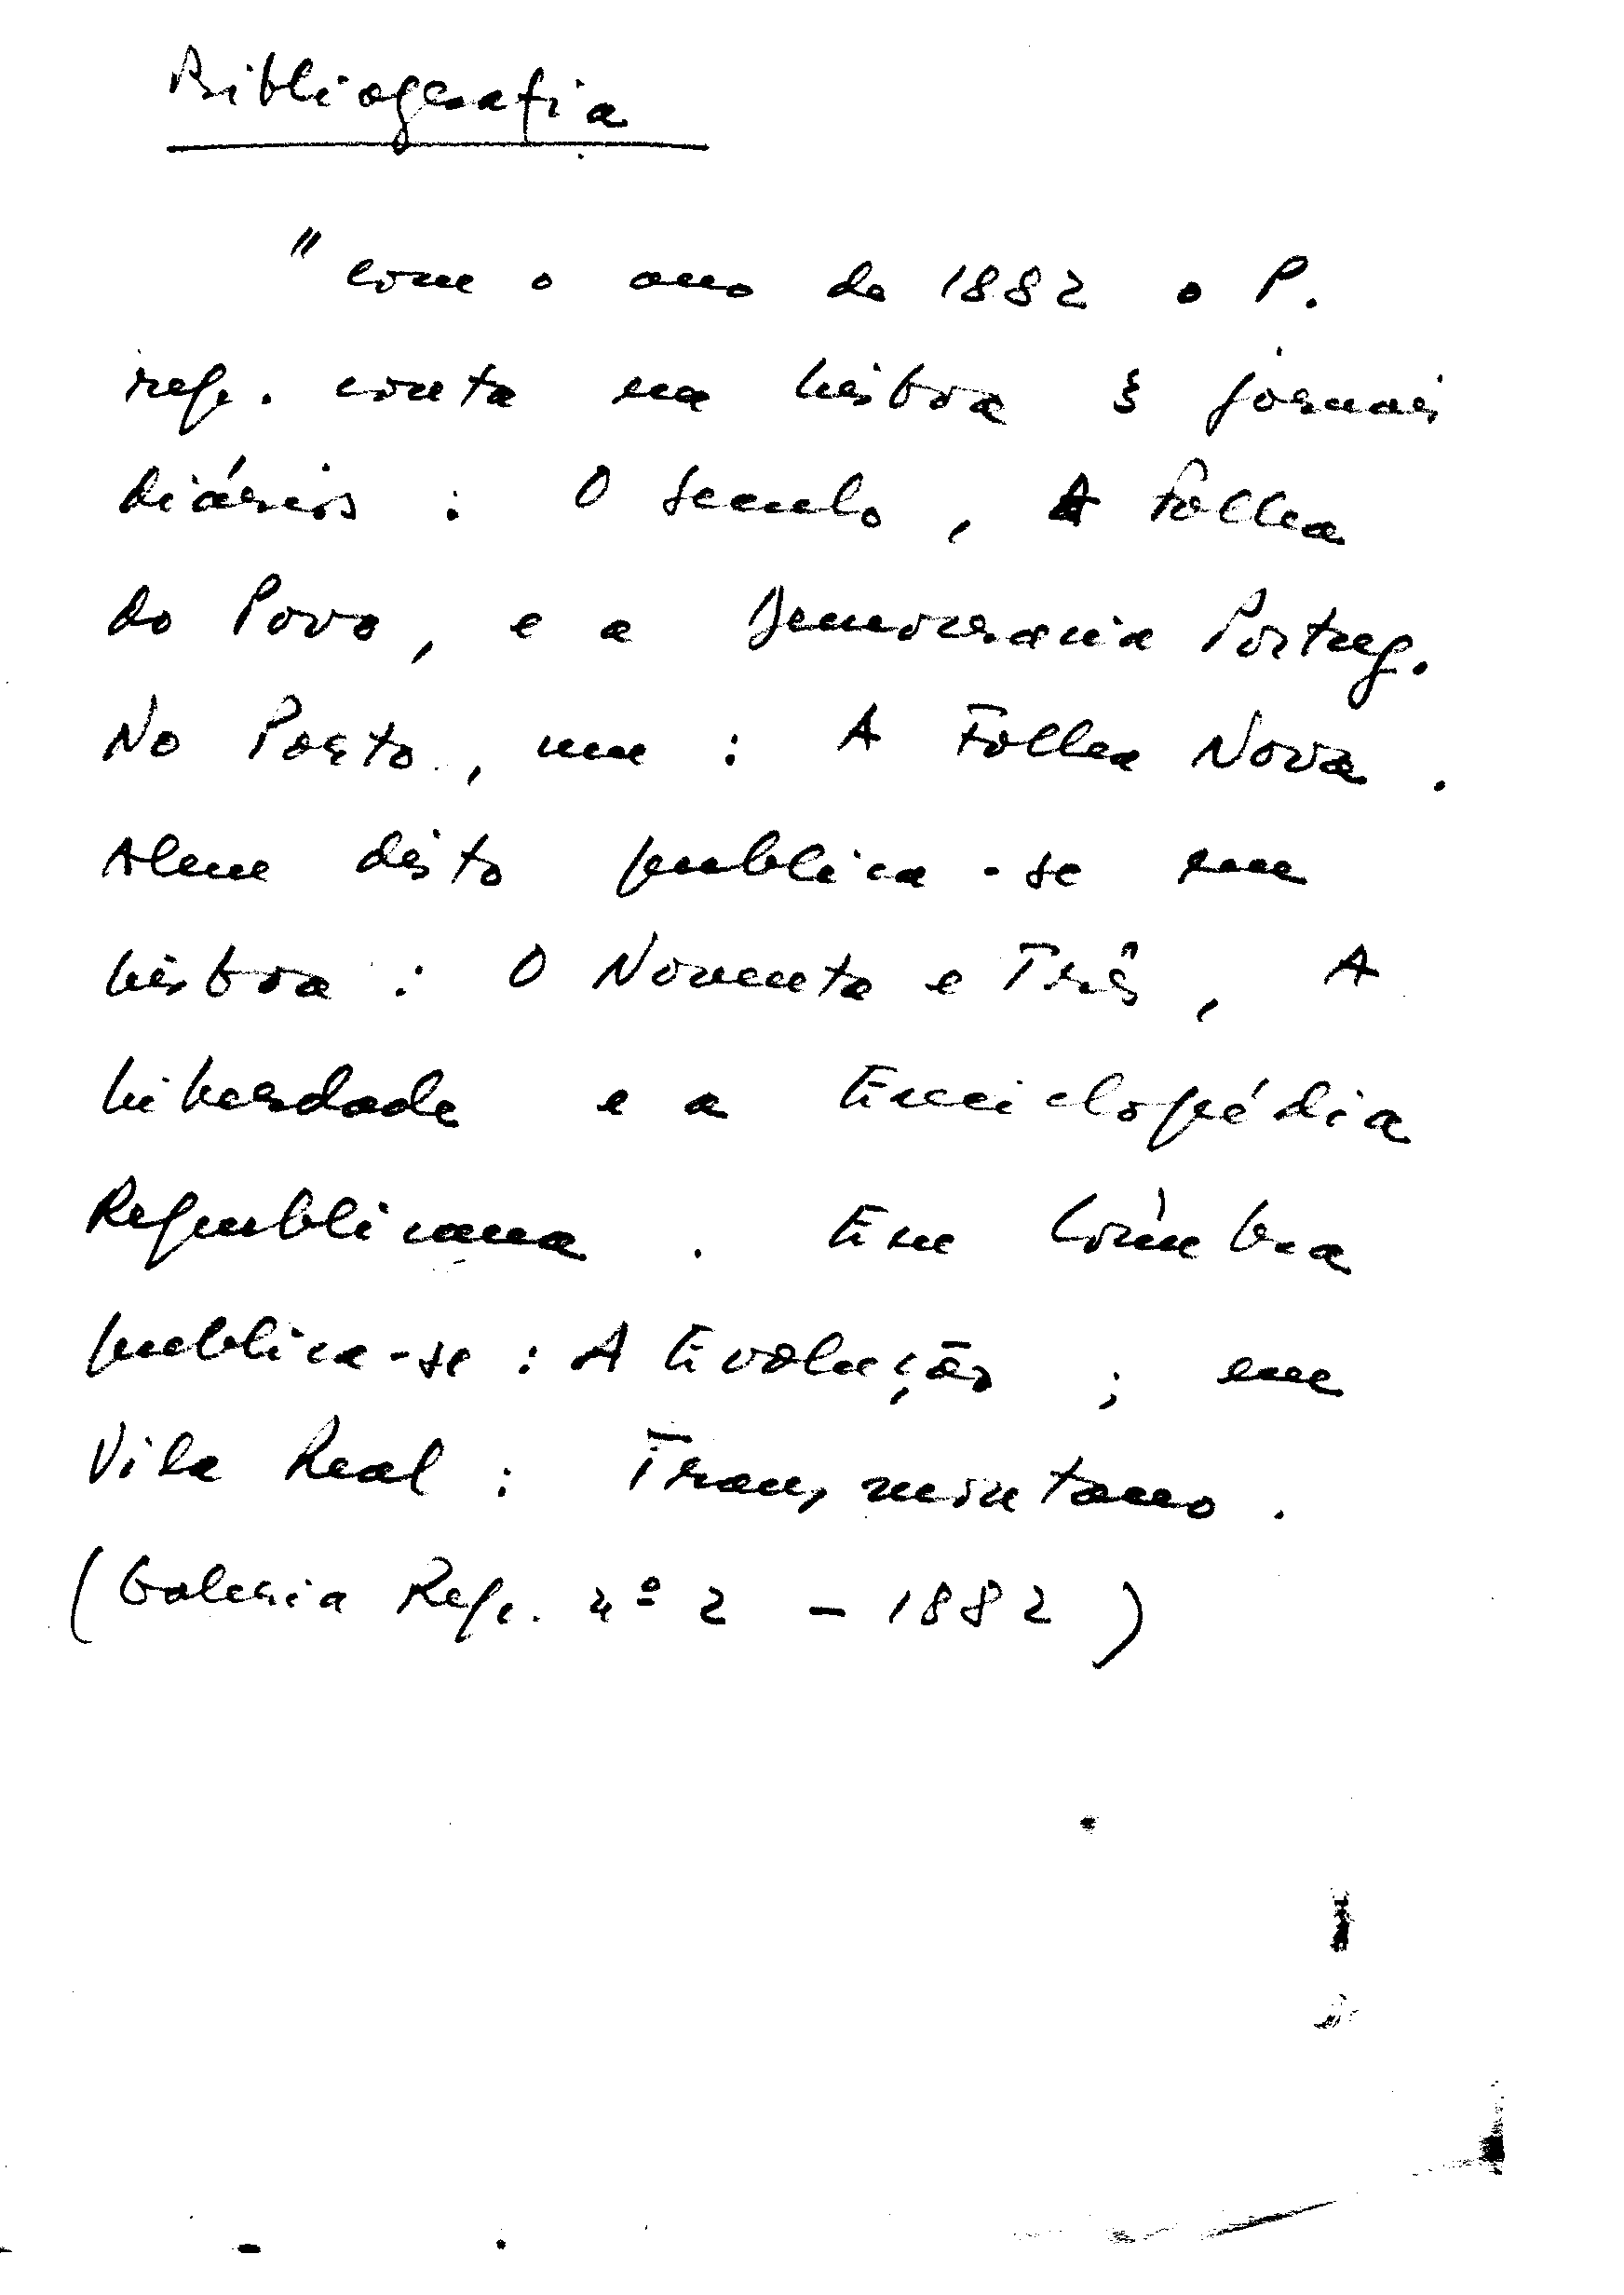 Bibliografia
"com o ano de 1882 o P.
rep. conta na Lisboa 3 jornais
diários : O Seculo, A Folha
do Povo, e a Democracia Portug.
No Porto, um : A Folha Nova.
Alem disto publica-se em
Lisboa : O Noventa e Três, A
Liberdade e a Enciclopédia
Republicana. Em Coímbra
publica-se : A Evolução ; em
Vila Real : Transmontano.
(Galeria Rep. nº 2 - 1882)